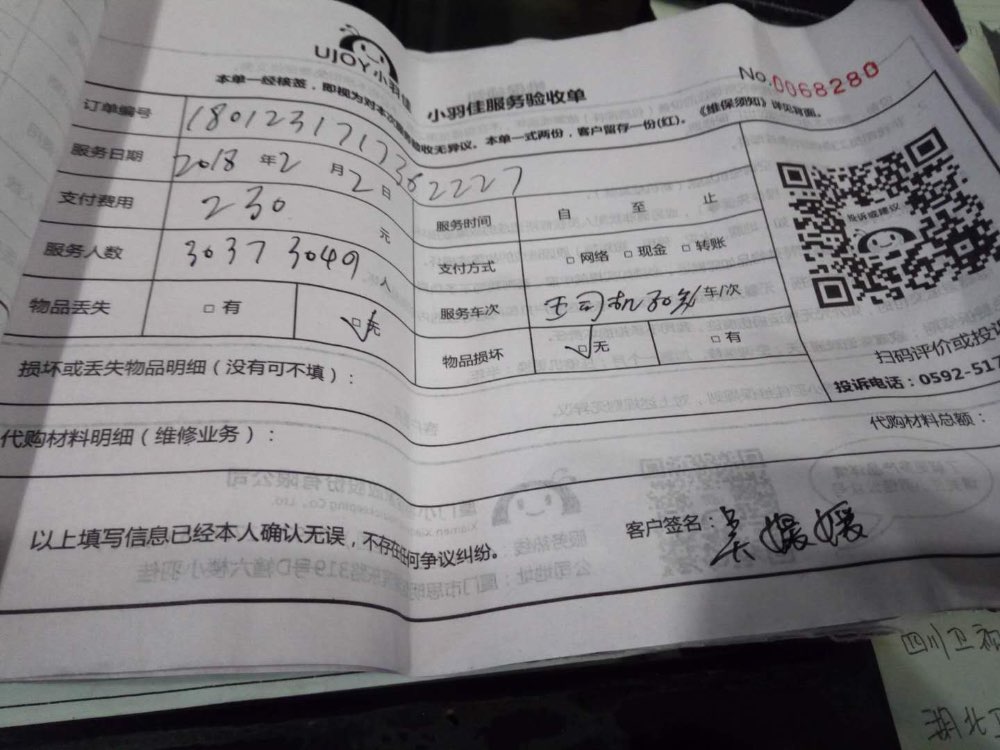 UJOY 小羽佳
小羽佳服务验收单
No.0068280
本单一经核签，即视为对本次服务验收无异议。本单一式两份，客户留存一份(红)。《维保须知》详见背面。
订单编号 1801231717382227
服务日期 2018 年 2 月 2 日
支付费用 230 元
服务时间 自 至 止
服务人数 3037 3049 人
支付方式 □ 网络 □ 现金 □ 转账
服务车次 王司机 车/次
物品丢失 □ 有 □ 无
物品损坏 □ 无 □ 有
投诉或建议
扫码评价或投
投诉电话：0592-517
损坏或丢失物品明细（没有可不填）：
代购材料明细（维修业务）：
代购材料总额：
以上填写信息已经本人确认无误，不存在任何争议纠纷。
客户签名：吴媛媛
四川卫视
湖北卫